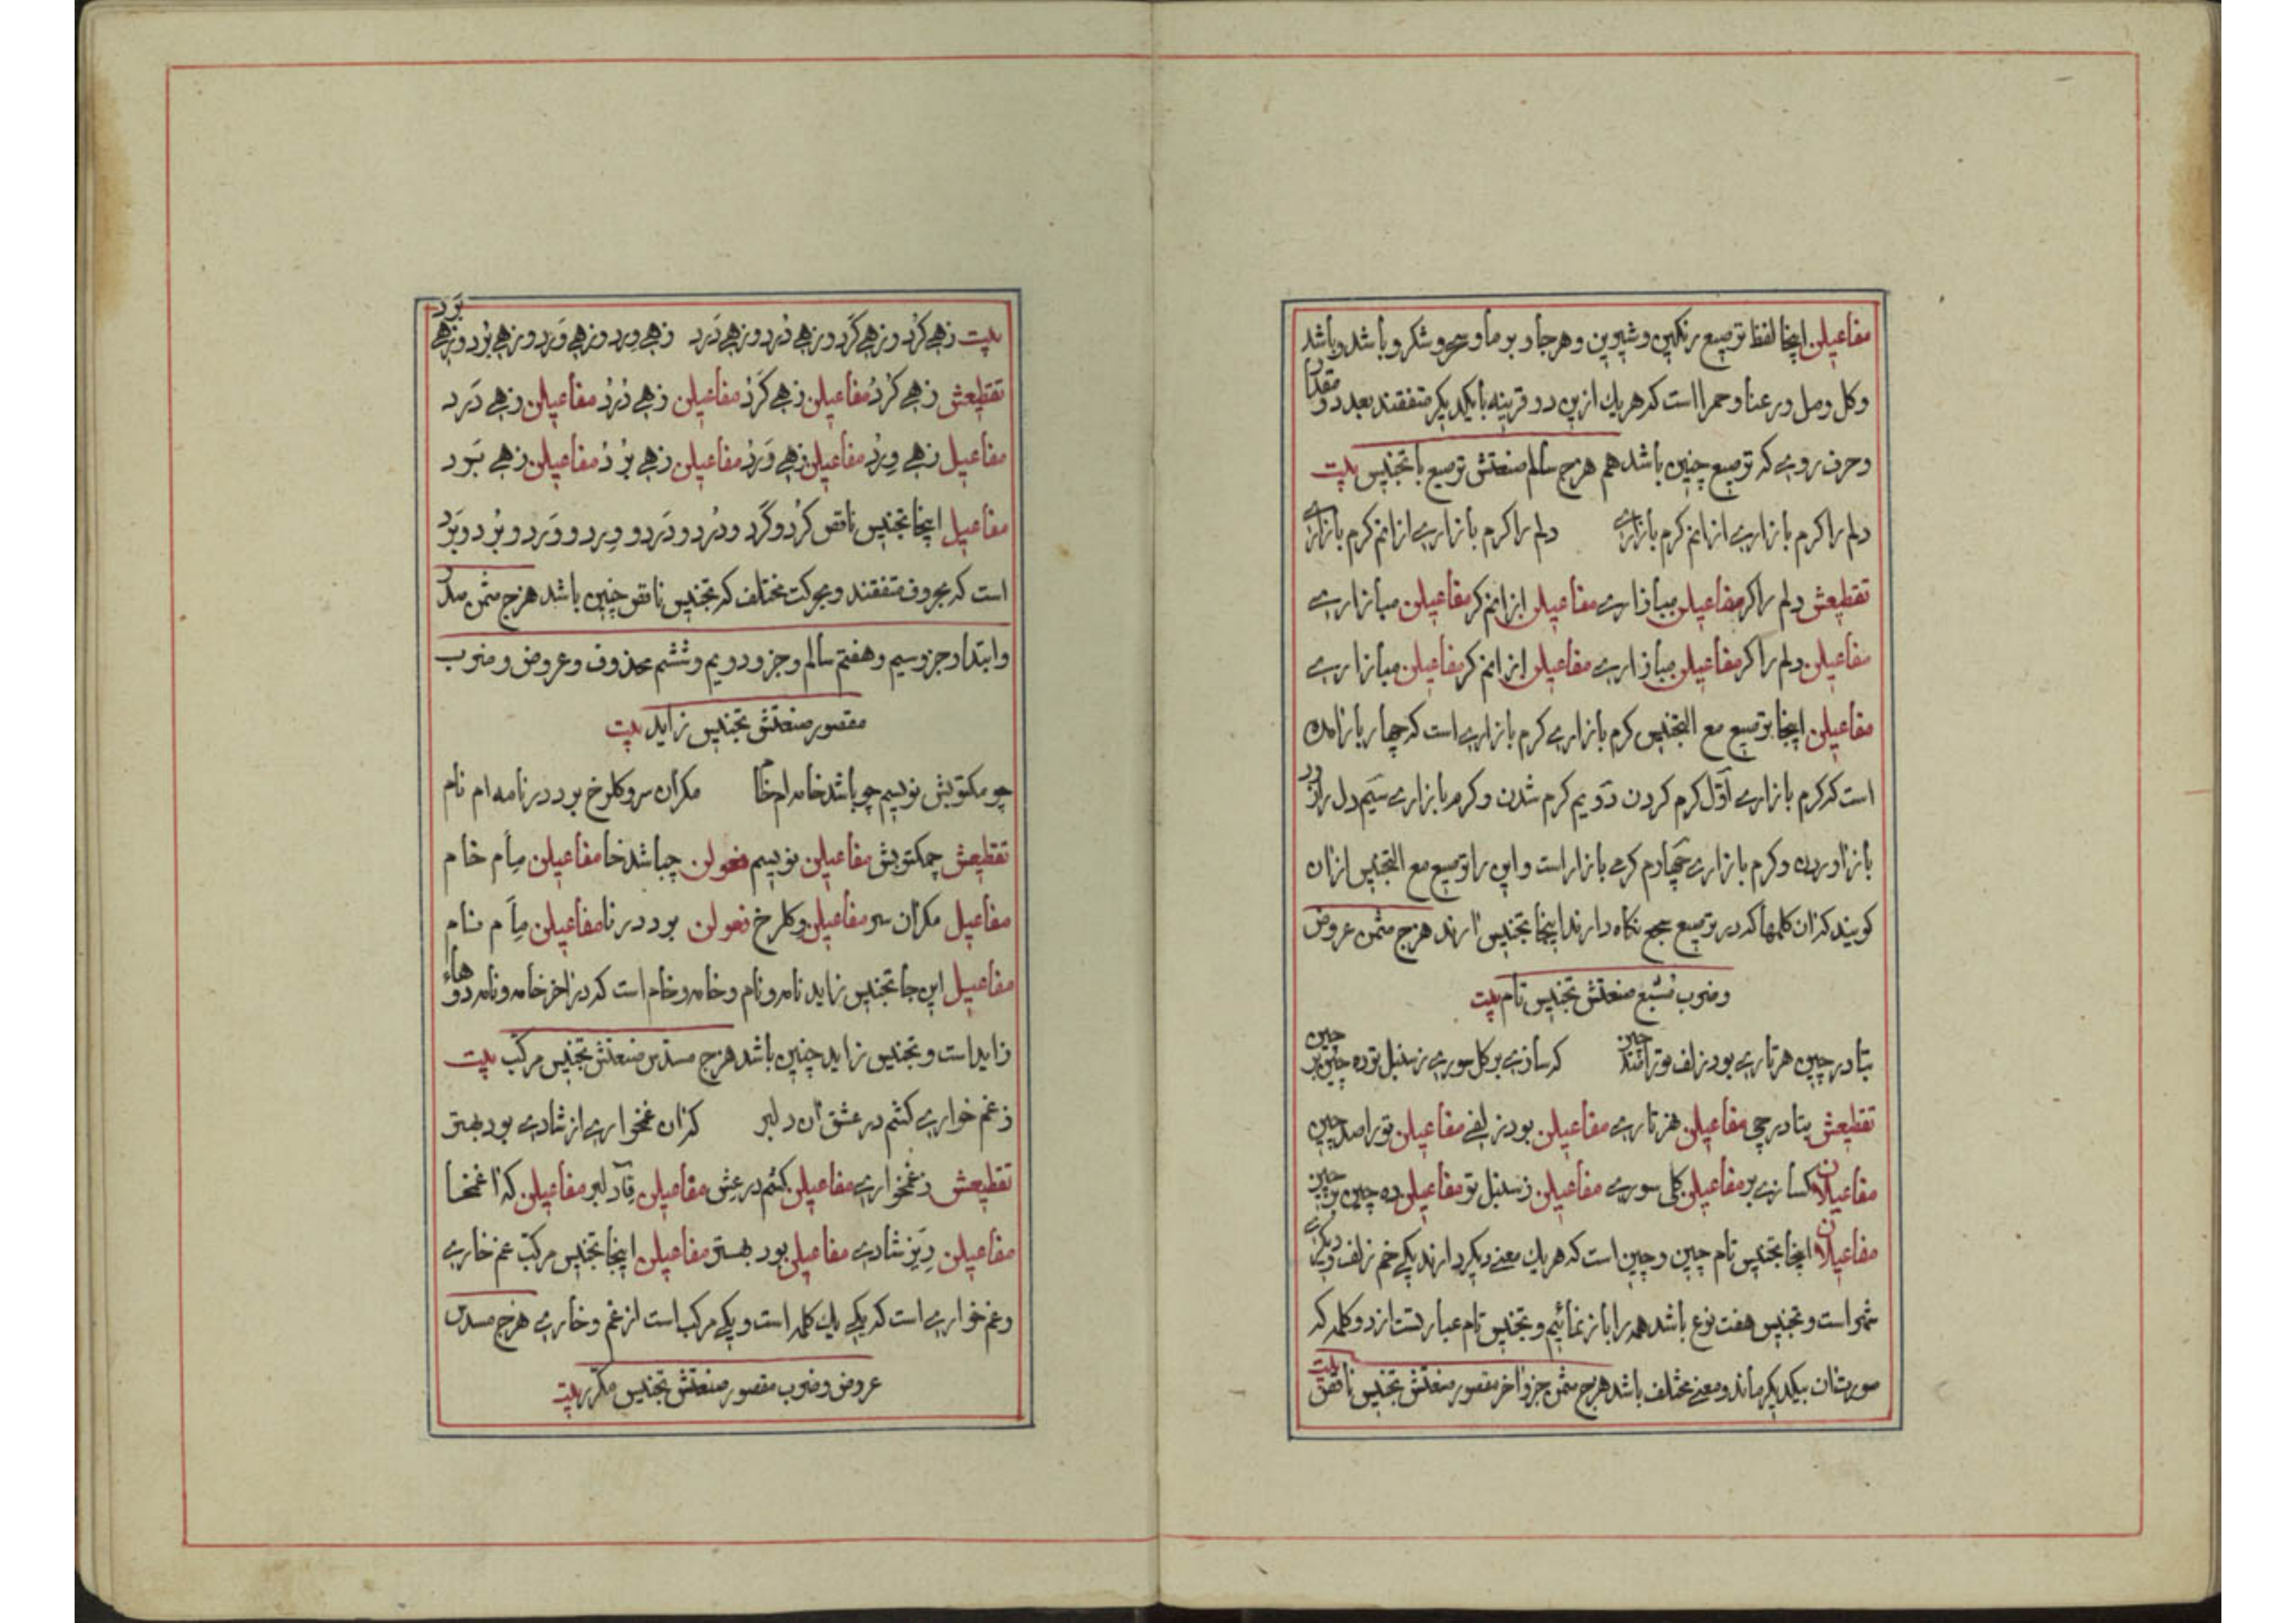 مفاعیلن اینجا لفظ ترصیع رنکین و شیرین و هرجا و بوما و سرو شکرو باشد و باشد
وکل و مل و رعنا و حمرا است که هر یك ازین دو قرینه با یکدیکر متفقند بعدد و مقدار
و حرف روے که ترصیع چنین باشد هم هزج سالم صنعتش ترصیع با تجنیس بیت
دلم را کرم بازارے ازانم کرم بازارے دلم را کرم بازارے ازانم کرم بازارے
تقطیعش دلم را کر مفاعیلن مبازارے مفاعیلن ازانم کر مفاعیلن مبازارے
مفاعیلن دلم را کر مفاعیلن مبازارے مفاعیلن ازانم کر مفاعیلن مبازارے
مفاعیلن اینجا ترصیع مع التجنیس کرم بازارے کرم بازارے است که چهار بار امده
است که کرم بازارے اوّل کرم کردن دَویم کرم شدن و کرم بازارے سَیم دل را از در
باز اوردن و کرم بازارے چَهارم کرمے بازار است و این را ترصیع مع التجنیس ازان
کویند که ان کلمها که در ترصیع سجع نکاه دارند اینجا تجنیس ارند هزج مثمن عروض
و ضرب مسبّغ صنعتش تجنیس تام بیت
بتا در چین هر تارے بود زلف تو را صد چین که سازے بر کل سورے ز سنبل توده چین بر چین
تقطیعش بتا در چی مفاعیلن هزتارے مفاعیلن بود زلفے مفاعیلن تو را صد چین
مفاعیلان کسازے بر مفاعیلن کلی سورے مفاعیلن ز سنبل تو مفاعیلن ده چین بر چین
مفاعیلان اینجا تجنیس تام چین و چین است که هر یك معنے دیکر دارند یکے خم زلف و دیکرے
شهر است و تجنیس هفت نوع باشد همه را باز نمائیم و تجنیس تام عبارتست از دو کلمه که
صورتشان بیکدیکر ماند و معنے مختلف باشد هزج مثمن جزو اخر مقصور صنعتش تجنیس ناقص بیت
بیت زهے کُرد و زهے کَرد و زهے دُرد و زهے دَرد زهے وِرد و زهے وَرد و زهے بُرد و زهے بَرد
تقطیعش زهے کُردُ مفاعیلن زهے کَردُ مفاعیلن زهے دُردُ مفاعیلن زهے دَرد
مفاعیل زهے وِردُ مفاعیلن زهے وَردُ مفاعیلن زهے بُردُ مفاعیلن زهے بَرد
مفاعیل اینجا تجنیس ناقص کُرد و کَرد و دُرد و دَرد و وِرد و وَرد و بُرد و بَرد
است که بحروف متفقند و بحرکت مختلف که تجنیس ناقص چنین باشد هزج مثمن صدر
و ابتدا و جزو سیم و هفتم سالم و جزو دویم و ششم محذوف و عروض و ضرب
مقصور صنعتش تجنیس زاید بیت
چو مکتوبش نویسم چو باشد خامه ام خام مکران سرو کلرخ برد در نامه ام نام
تقطیعش چمکتوبش مفاعیلن نویسم فعولن چباشد خا مفاعیلن مِاَم خام
مفاعیل مکران سر مفاعیلن وکلرخ فعولن برد در نا مفاعیلن مِاَم نام
مفاعیل این جا تجنیس زاید نامه و نام و خامه و خام است که در اخر خامه و نامه دو هاء
زاید است و تجنیس زاید چنین باشد هزج مسدس صنعتش تجنیس مرکّب بیت
ز غم خوارے کشم در عشق ان دلبر که ان غمخوارے از شادے بود بهتر
تقطیعش زغمخوارے مفاعیلن کشم در عِش مفاعیلن قِاَن دلبر مفاعیلن که ا غمخا
مفاعیلن رِیز شادے مفاعیلن بود بهتر مفاعیلن اینجا تجنیس مرکّب غم خارے
و غم خوارے است که یکے یك کلمه است و یکے مرکب است از غم و خارے هزج مسدس
عروض و ضرب مقصور صنعتش تجنیس مکرّر بیت